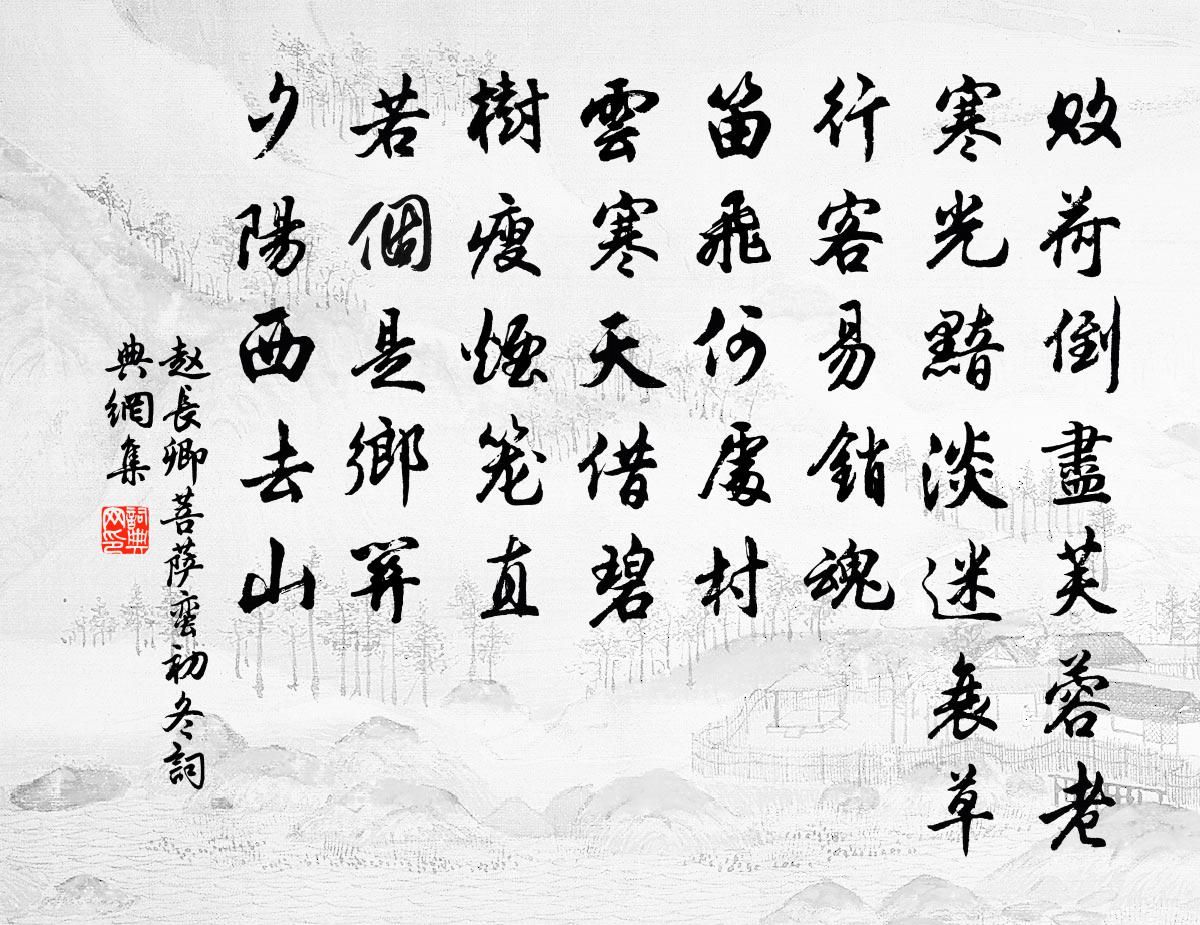 败荷倒盡芙蓉老
寒光黯淡迷衰草
行客易銷魂
笛飛何處村
雲寒天借碧
樹瘦煙笼直
若個是鄉關
夕陽西去山
赵長卿菩萨蛮初冬詞
典網集
詞典
网印